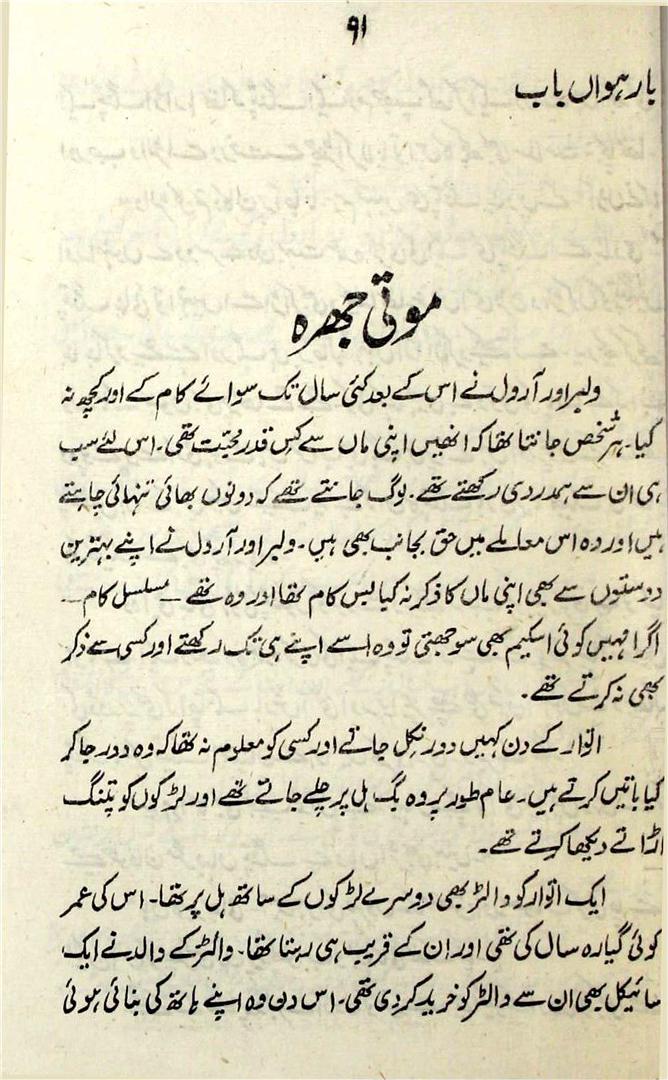 ۹۱
بارہواں باب
موتی جھرہ
ولبر اور آرول نے اس کے بعد کئی سال تک سوائے کام کے اور کچھ نہ
کیا۔ ہر شخص جانتا تھا کہ انھیں اپنی ماں سے کس قدر محبّت تھی۔ اس لئے سب
ہی ان سے ہمدردی رکھتے تھے۔ لوگ جانتے تھے کہ دونوں بھائی تنہائی چاہتے
ہیں اور وہ اس معاملے میں حق بجانب بھی ہیں۔ ولبر اور آرول نے اپنے بہترین
دوستوں سے بھی اپنی ماں کا ذکر نہ کیا بس کام تھا اور وہ تھے — مسلسل کام —
اگر انہیں کوئی اسکیم بھی سوجھتی تو وہ اسے اپنے ہی تک رکھتے اور کسی سے ذکر
بھی نہ کرتے تھے۔
اتوار کے دن کہیں دور نکل جاتے اور کسی کو معلوم نہ تھا کہ وہ دور جا کر
کیا باتیں کرتے ہیں۔ عام طور پر وہ بگ ہل پر چلے جاتے تھے اور لڑکوں کو پتنگ
اڑاتے دیکھا کرتے تھے۔
ایک اتوار کو والٹر بھی دوسرے لڑکوں کے ساتھ ہل پر تھا۔ اس کی عمر
کوئی گیارہ سال کی تھی اور ان کے قریب ہی رہتا تھا۔ والٹر کے والد نے ایک
سائیکل بھی ان سے والٹر کو خرید کر دی تھی۔ اس دن وہ اپنے ہاتھ کی بنائی ہوئی